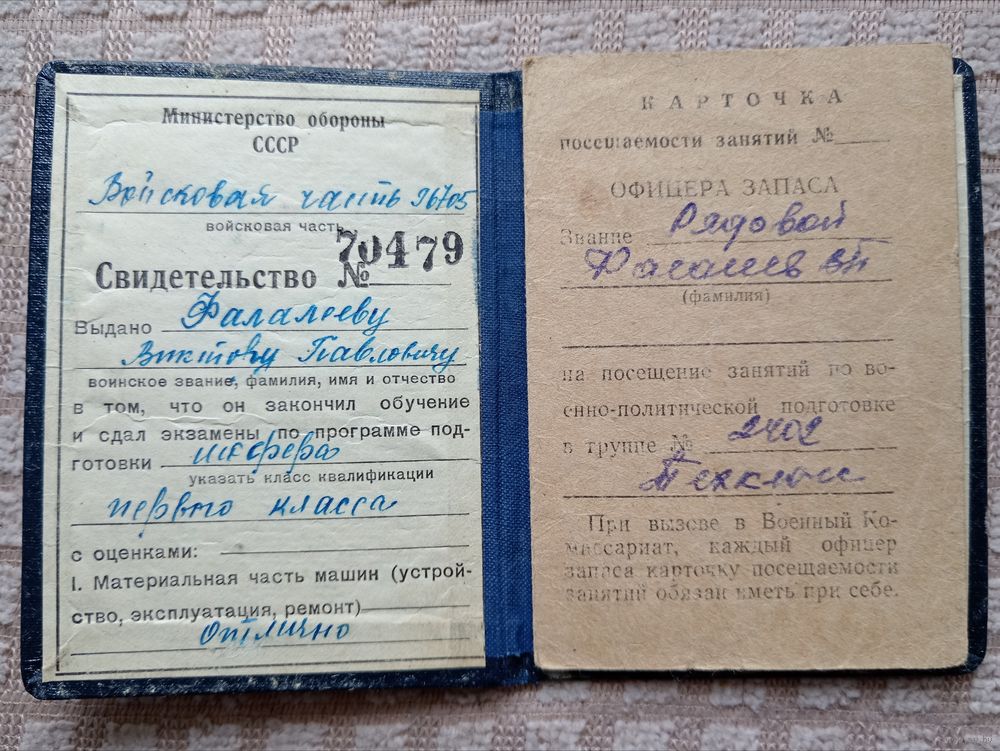 Министерство обороны
СССР
Войсковая часть 96705
войсковая часть
Свидетельство № 70479
Выдано Фалалееву
Виктору Павловичу
воинское звание, фамилия, имя и отчество
в том, что он закончил обучение
и сдал экзамены по программе под-
готовки шофера
указать класс квалификации
первого класса
с оценками:
1. Материальная часть машин (устрой-
ство, эксплуатация, ремонт)
отлично
КАРТОЧКА
посещаемости занятий №
ОФИЦЕРА ЗАПАСА
Звание Рядовой
Фалалеев ВП
(фамилия)
на посещение занятий по во-
енно-политической подготовке
в группе № 2402
Техкласс
При вызове в Военный Ко-
миссариат, каждый офицер
запаса карточку посещаемости
занятий обязан иметь при себе.